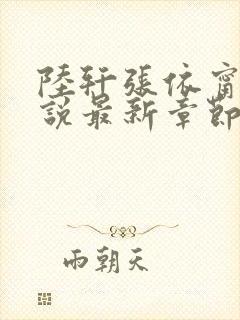 陸軒張依甯
說最新章節
雨朝天